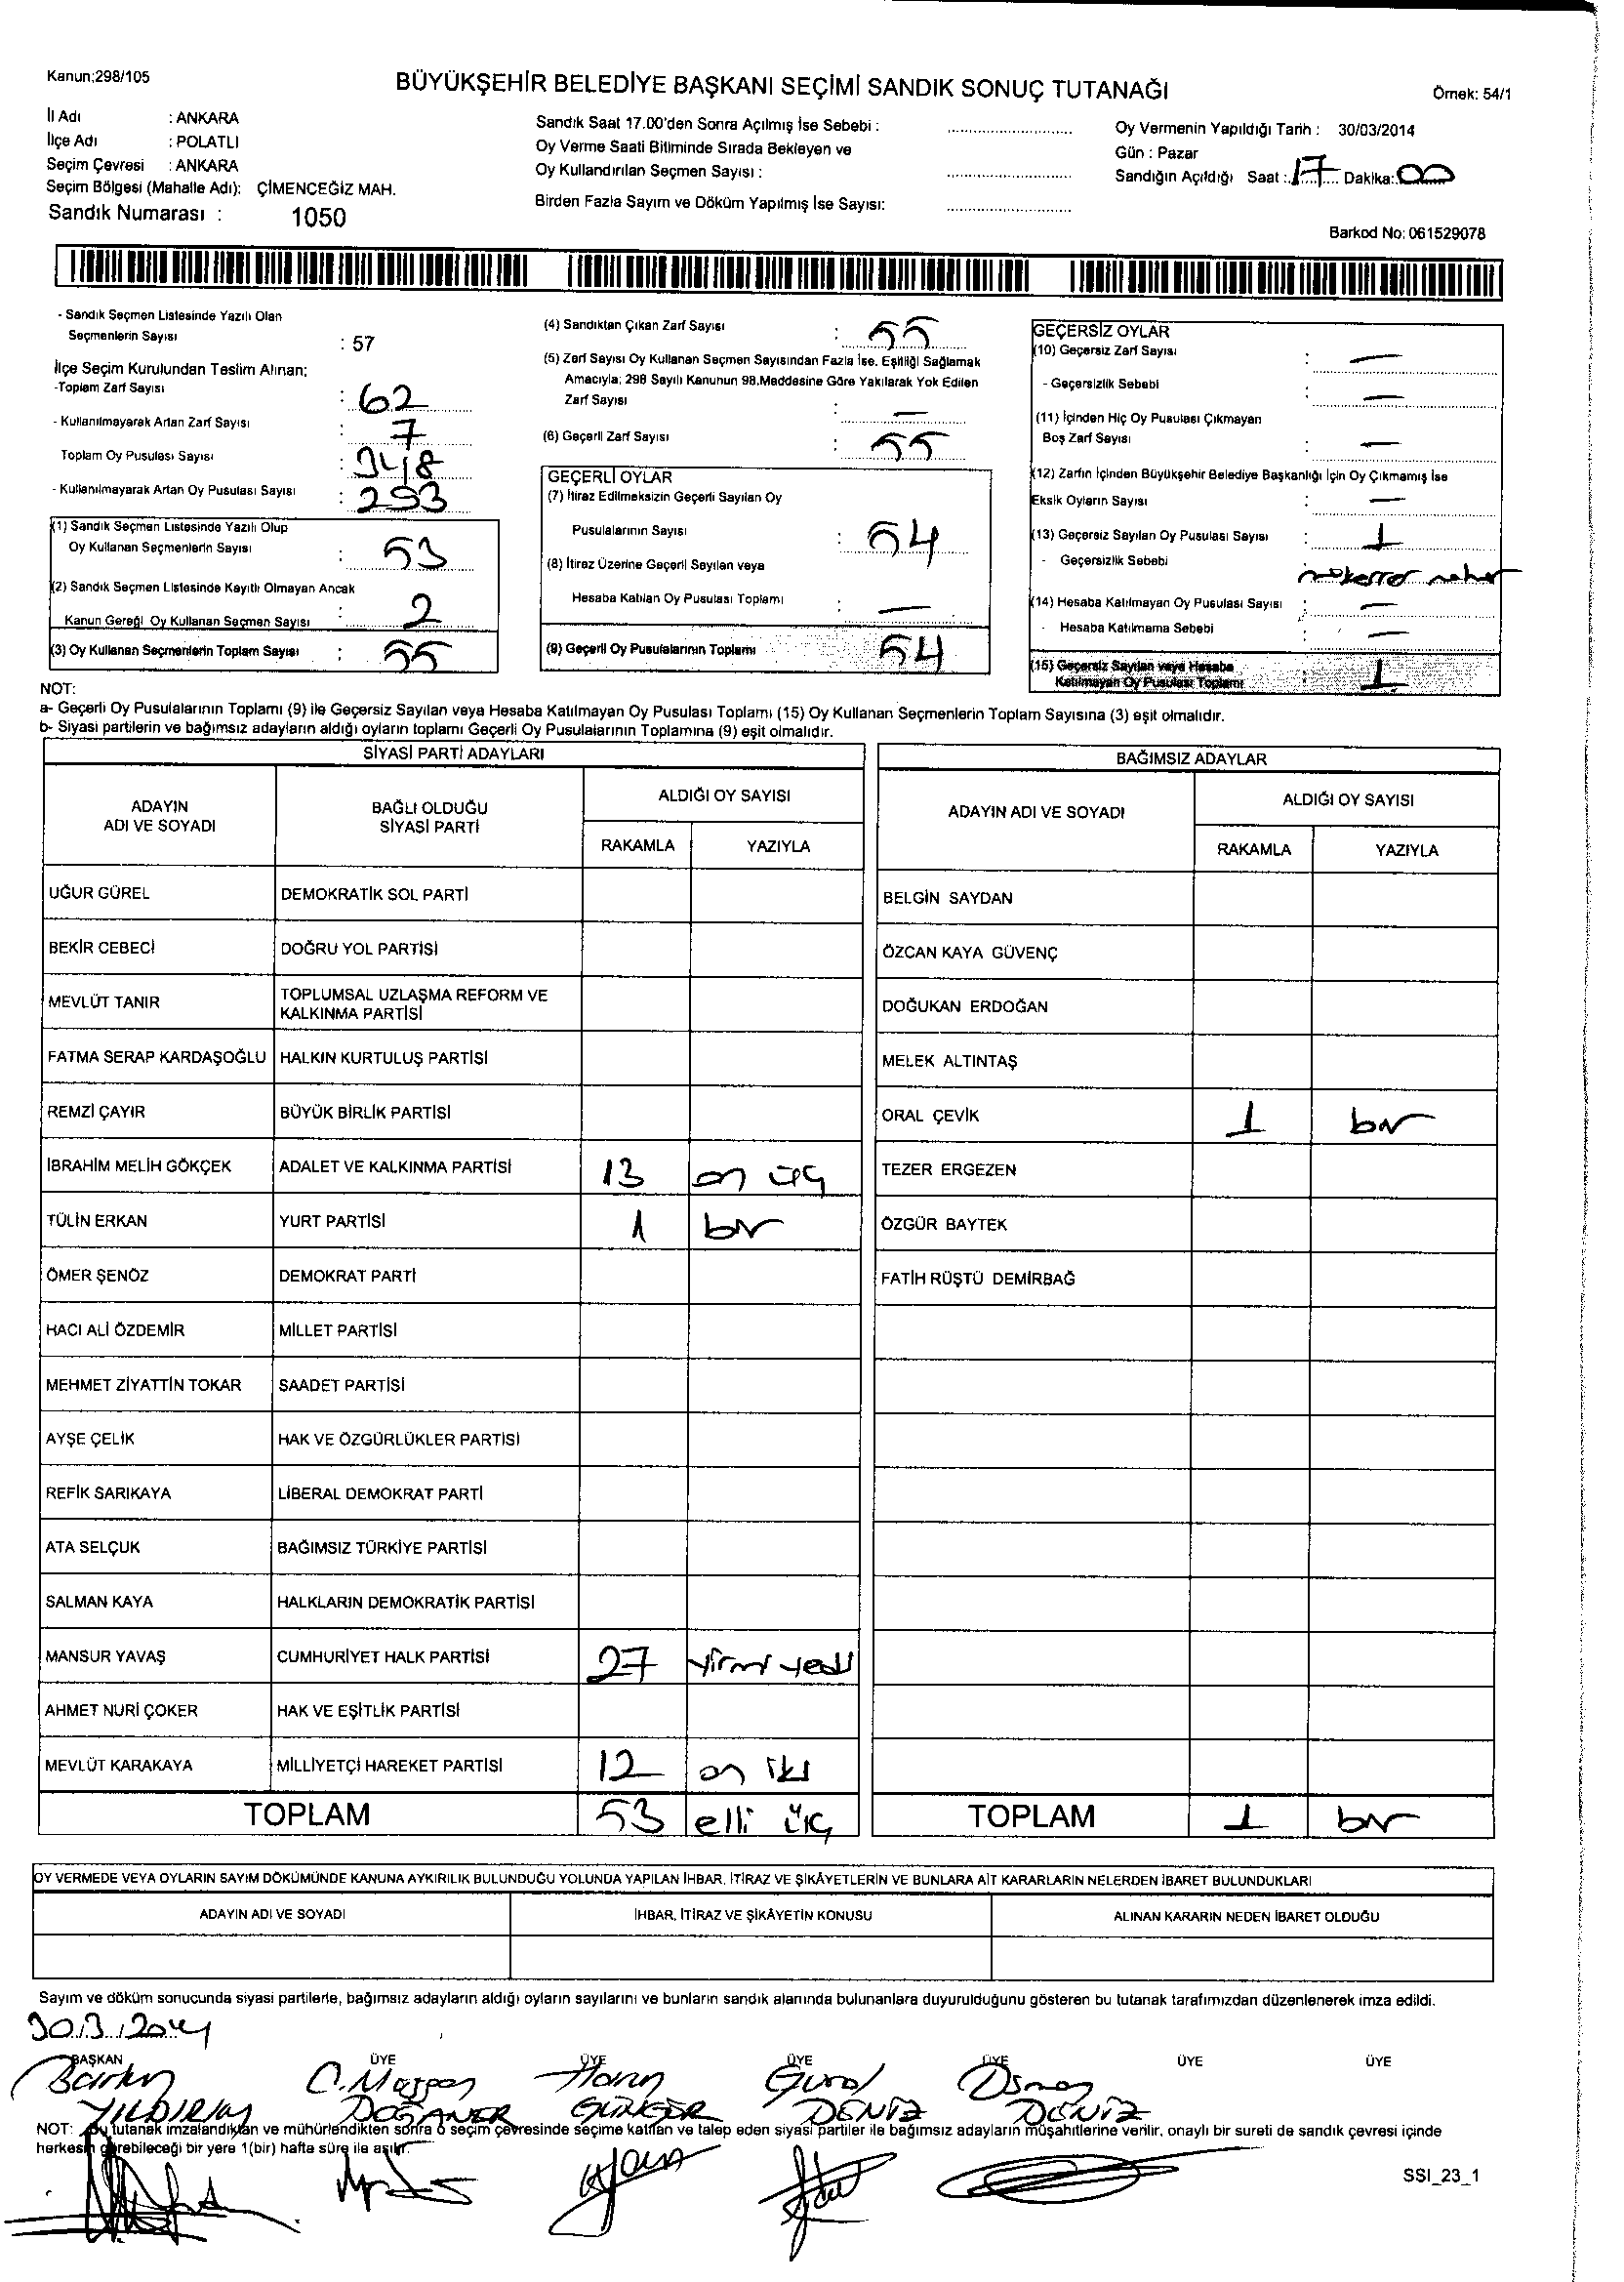 Kanun;298/105
BÜYÜKŞEHİR BELEDİYE BAŞKANI SEÇİMİ SANDIK SONUÇ TUTANAĞI
Örnek: 54/1
İl Adı : ANKARA
İlçe Adı : POLATLI
Seçim Çevresi : ANKARA
Seçim Bölgesi (Mahalle Adı): ÇİMENCEĞİZ MAH.
Sandık Numarası : 1050
Sandık Saat 17.00'den Sonra Açılmış İse Sebebi :
Oy Verme Saati Bitiminde Sırada Bekleyen ve
Oy Kullandırılan Seçmen Sayısı :
Birden Fazla Sayım ve Döküm Yapılmış İse Sayısı:
Oy Vermenin Yapıldığı Tarih : 30/03/2014
Gün : Pazar
Sandığın Açıldığı Saat : 17 Dakika: 00
Barkod No: 061529078
- Sandık Seçmen Listesinde Yazılı Olan
Seçmenlerin Sayısı : 57
İlçe Seçim Kurulundan Teslim Alınan;
-Toplam Zarf Sayısı : 62
- Kullanılmayarak Artan Zarf Sayısı : 7
Toplam Oy Pusulası Sayısı : 348
- Kullanılmayarak Artan Oy Pusulası Sayısı : 293
(1) Sandık Seçmen Listesinde Yazılı Olup
Oy Kullanan Seçmenlerin Sayısı : 53
(2) Sandık Seçmen Listesinde Kayıtlı Olmayan Ancak
Kanun Gereği Oy Kullanan Seçmen Sayısı : 2
(3) Oy Kullanan Seçmenlerin Toplam Sayısı : 55
(4) Sandıktan Çıkan Zarf Sayısı : 55
(5) Zarf Sayısı Oy Kullanan Seçmen Sayısından Fazla İse. Eşitliği Sağlamak
Amacıyla; 298 Sayılı Kanunun 98.Maddesine Göre Yakılarak Yok Edilen
Zarf Sayısı : —
(6) Geçerli Zarf Sayısı : 55
GEÇERLİ OYLAR
(7) İtiraz Edilmeksizin Geçerli Sayılan Oy
Pusulalarının Sayısı : 54
(8) İtiraz Üzerine Geçerli Sayılan veya
Hesaba Katılan Oy Pusulası Toplamı : —
(9) Geçerli Oy Pusulalarının Toplamı 54
GEÇERSİZ OYLAR
(10) Geçersiz Zarf Sayısı : —
- Geçersizlik Sebebi : —
(11) İçinden Hiç Oy Pusulası Çıkmayan
Boş Zarf Sayısı : —
(12) Zarfın İçinden Büyükşehir Belediye Başkanlığı İçin Oy Çıkmamış İse
Eksik Oyların Sayısı : —
(13) Geçersiz Sayılan Oy Pusulası Sayısı : 1
- Geçersizlik Sebebi : mükerrer mühür
(14) Hesaba Katılmayan Oy Pusulası Sayısı : —
- Hesaba Katılmama Sebebi : —
(15) Geçersiz Sayılan veya Hesaba
Katılmayan Oy Pusulası Toplamı : 1
NOT:
a- Geçerli Oy Pusulalarının Toplamı (9) ile Geçersiz Sayılan veya Hesaba Katılmayan Oy Pusulası Toplamı (15) Oy Kullanan Seçmenlerin Toplam Sayısına (3) eşit olmalıdır.
b- Siyasi partilerin ve bağımsız adayların aldığı oyların toplamı Geçerli Oy Pusulalarının Toplamına (9) eşit olmalıdır.
SİYASİ PARTİ ADAYLARI
ADAYIN ADI VE SOYADI
BAĞLI OLDUĞU SİYASİ PARTİ
ALDIĞI OY SAYISI
RAKAMLA YAZIYLA
UĞUR GÜREL DEMOKRATİK SOL PARTİ
BEKİR CEBECİ DOĞRU YOL PARTİSİ
MEVLÜT TANIR TOPLUMSAL UZLAŞMA REFORM VE
KALKINMA PARTİSİ
FATMA SERAP KARDAŞOĞLU HALKIN KURTULUŞ PARTİSİ
REMZİ ÇAYIR BÜYÜK BİRLİK PARTİSİ
İBRAHİM MELİH GÖKÇEK ADALET VE KALKINMA PARTİSİ 13 on üç
TÜLİN ERKAN YURT PARTİSİ 1 bir
ÖMER ŞENÖZ DEMOKRAT PARTİ
HACI ALİ ÖZDEMİR MİLLET PARTİSİ
MEHMET ZİYATTİN TOKAR SAADET PARTİSİ
AYŞE ÇELİK HAK VE ÖZGÜRLÜKLER PARTİSİ
REFİK SARIKAYA LİBERAL DEMOKRAT PARTİ
ATA SELÇUK BAĞIMSIZ TÜRKİYE PARTİSİ
SALMAN KAYA HALKLARIN DEMOKRATİK PARTİSİ
MANSUR YAVAŞ CUMHURİYET HALK PARTİSİ 27 yirmi yedi
AHMET NURİ ÇOKER HAK VE EŞİTLİK PARTİSİ
MEVLÜT KARAKAYA MİLLİYETÇİ HAREKET PARTİSİ 12 on iki
TOPLAM 53 elli üç
BAĞIMSIZ ADAYLAR
ADAYIN ADI VE SOYADI
ALDIĞI OY SAYISI
RAKAMLA YAZIYLA
BELGİN SAYDAN
ÖZCAN KAYA GÜVENÇ
DOĞUKAN ERDOĞAN
MELEK ALTINTAŞ
ORAL ÇEVİK 1 bir
TEZER ERGEZEN
ÖZGÜR BAYTEK
FATİH RÜŞTÜ DEMİRBAĞ
TOPLAM 1 bir
OY VERMEDE VEYA OYLARIN SAYIM DÖKÜMÜNDE KANUNA AYKIRILIK BULUNDUĞU YOLUNDA YAPILAN İHBAR, İTİRAZ VE ŞİKÂYETLERİN VE BUNLARA AİT KARARLARIN NELERDEN İBARET BULUNDUKLARI
ADAYIN ADI VE SOYADI İHBAR, İTİRAZ VE ŞİKÂYETİN KONUSU ALINAN KARARIN NEDEN İBARET OLDUĞU
Sayım ve döküm sonucunda siyasi partilerle, bağımsız adayların aldığı oyların sayılarını ve bunların sandık alanında bulunanlara duyurulduğunu gösteren bu tutanak tarafımızdan düzenlenerek imza edildi.
30/3/2014
BAŞKAN ÜYE ÜYE ÜYE ÜYE ÜYE ÜYE
Harun Gürol Osman
YILDIRIM DOĞANER GÜNGÖR DENİZ DENİZ
NOT: Bu tutanak imzalandıktan ve mühürlendikten sonra o seçim çevresinde seçime katılan ve talep eden siyasi partiler ile bağımsız adayların müşahitlerine verilir, onaylı bir sureti de sandık çevresi içinde
herkesin görebileceği bir yere 1(bir) hafta süre ile asılır.
SSI_23_1